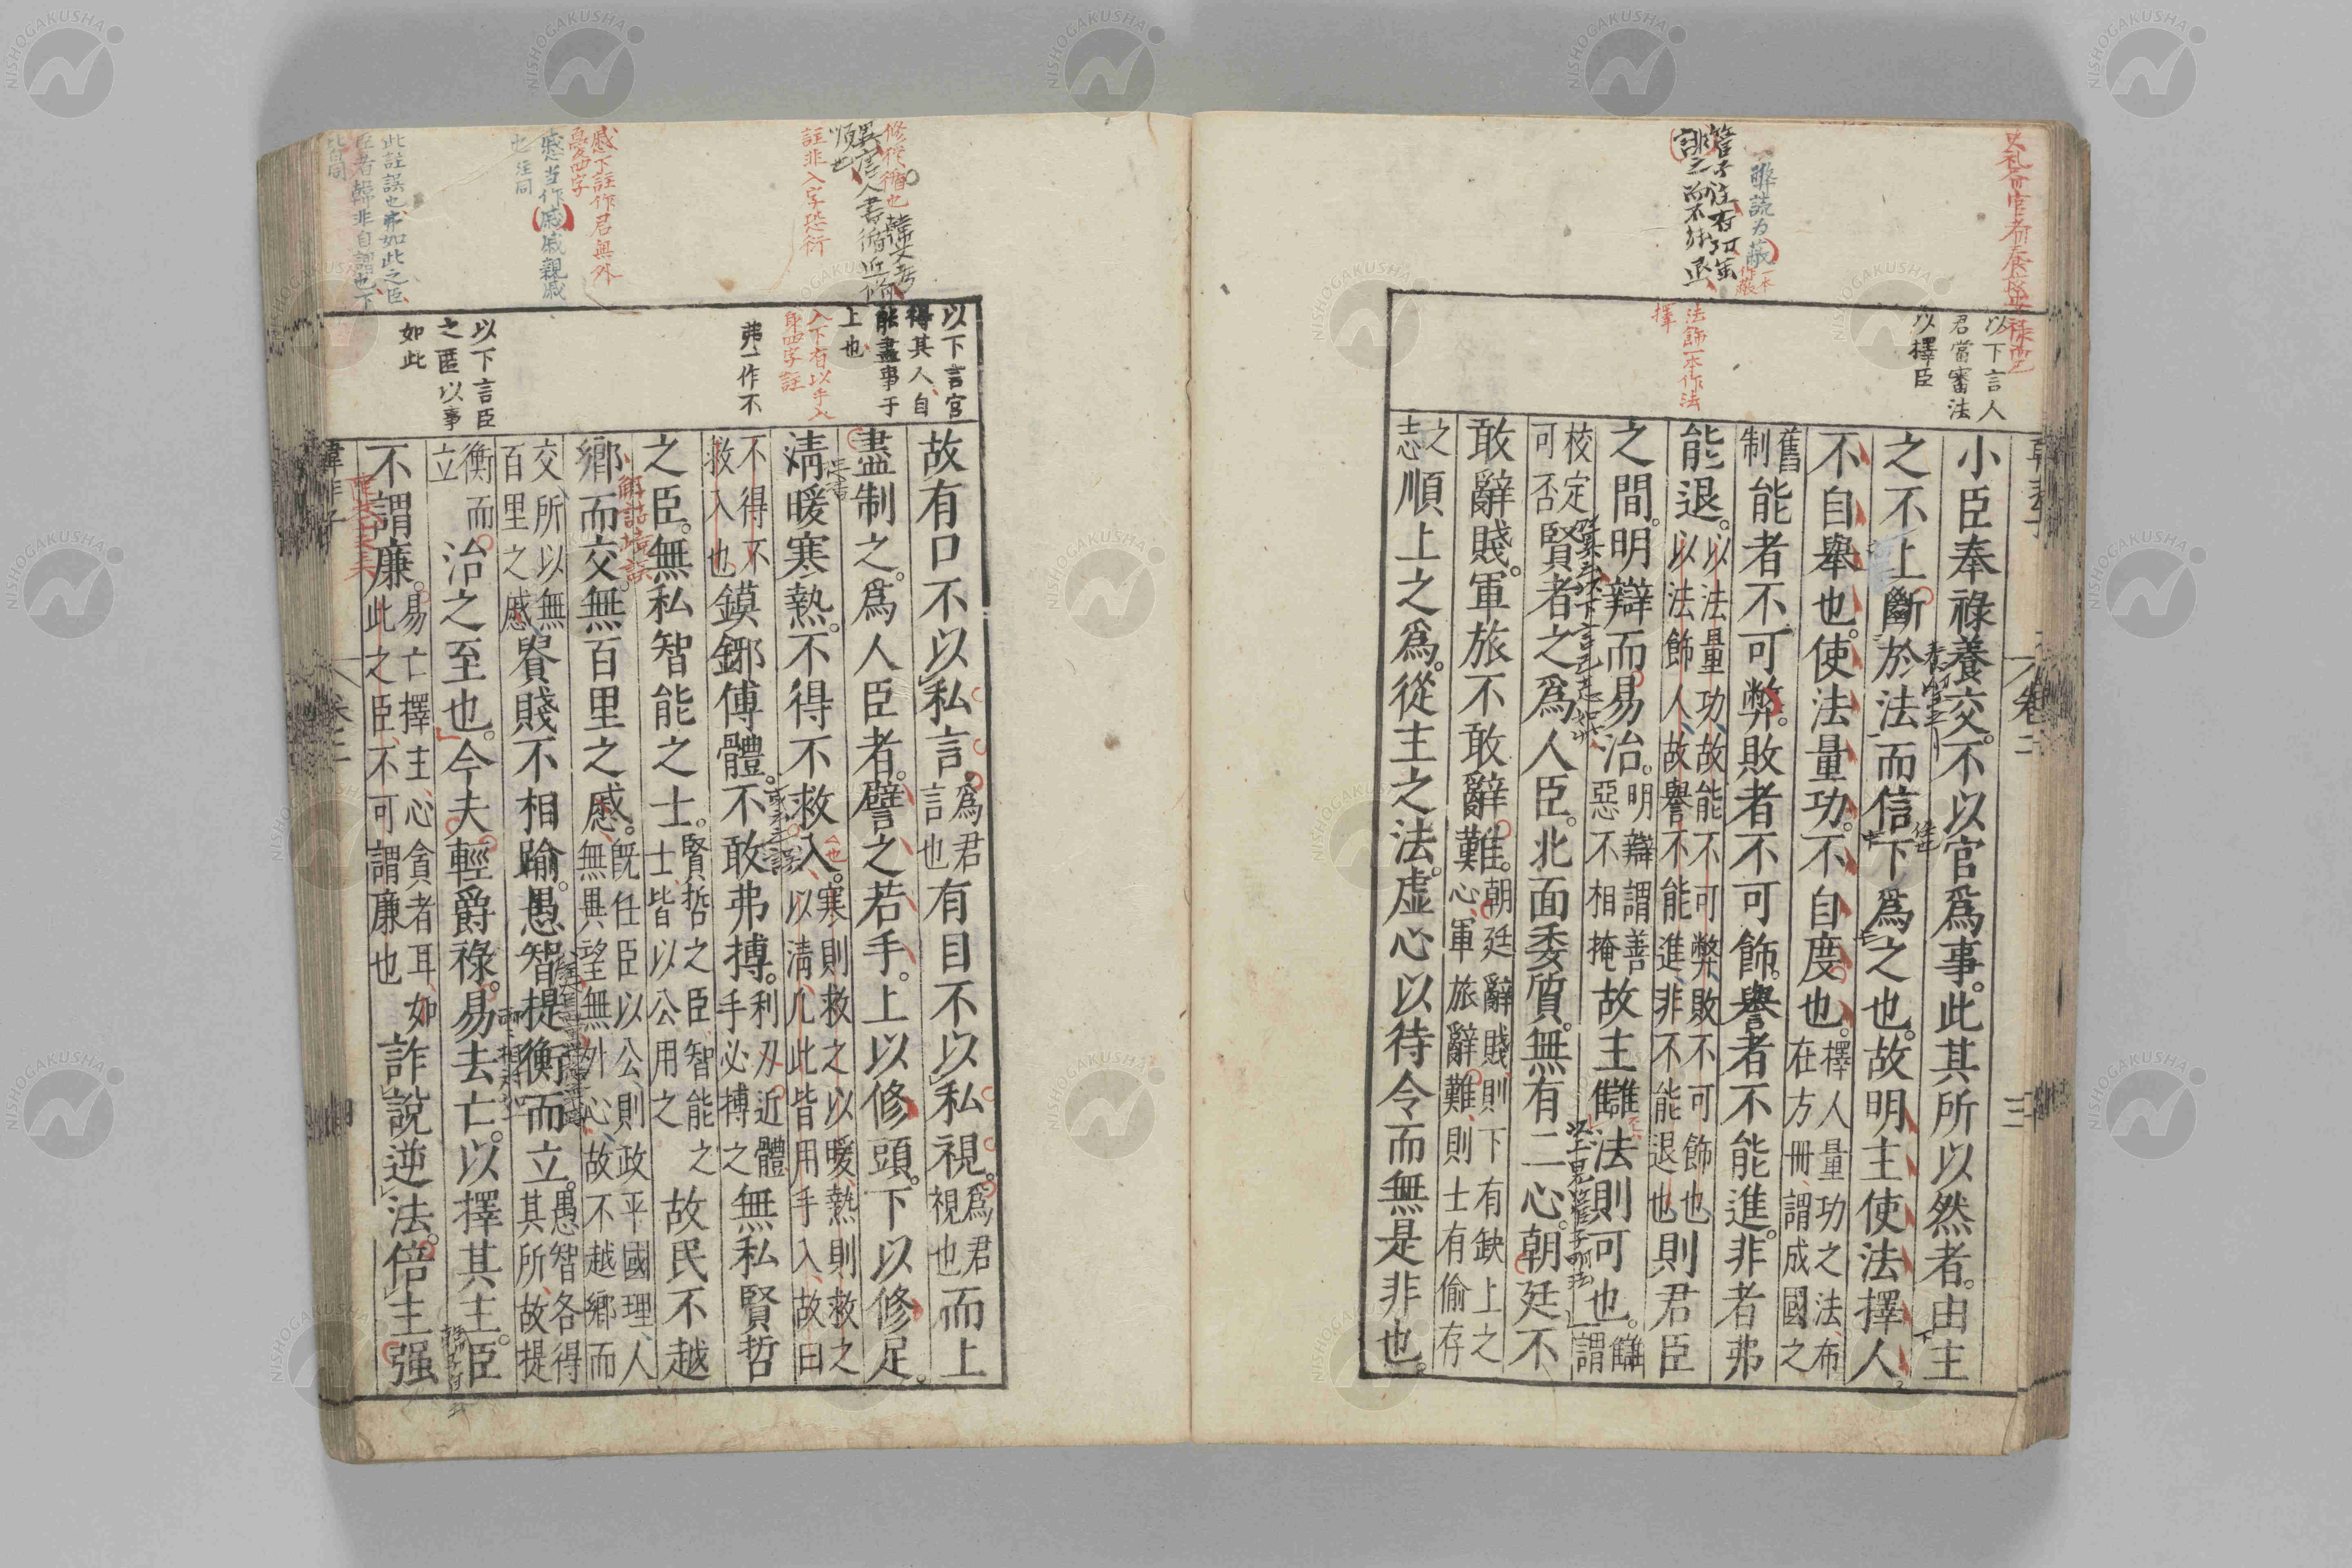 以下言人
君當審法
以擇臣
小臣奉祿養交不以官爲事此其所以然者由主
之不上斷於法而信下爲之也故明主使法擇人
不自舉也使法量功不自度也擇人量功之法布在方冊謂成國之
舊制能者不可弊敗者不可飾譽者不能進非者弗
能退以法量功故能不可弊敗不可飾也以法飾人故譽不能進非不能退也則君臣
之間明辯而易治明辯謂善惡不相掩故主讎法則可也讎謂
校定可否賢者之爲人臣北面委質無有二心朝廷不
敢辭賤軍旅不敢辭難朝廷辭賤則下有缺上之心軍旅辭難則士有偷存
之志順上之爲從主之法虛心以待令而無是非也
法飾一本作法
擇
聯読为蔽
卷二
三
以下言官
得其人自
能盡事于
上也
弗一作不
以下言臣
之匿以事
如此
故有口不以私言爲君言也有目不以私視爲君視也而上
盡制之爲人臣者譬之若手上以修頭下以修足
淸暖寒熱不得不救入寒則救之以暖熱則救之以淸凡此皆用手入故曰
不得不救入也鏌鋣傅體不敢弗搏利刃近體手必搏之無私賢哲
之臣無私智能之士賢哲之臣智能之士皆以公用之故民不越
鄉而交無百里之慼既任臣以公則政平國理人無異望無外心故不越鄉而
交所以無百里之慼貴賤不相踰愚智提衡而立愚智各得其所故提
衡而立治之至也今夫輕爵祿易去亡以擇其主臣
不謂廉易亡擇主心貪者耳如此之臣不可謂廉也詐說逆法倍主强
入下有以手入
身四字註
修修循也
註非入字恐衍
慼下註作君無外
憂四字
慼当作戚戚親戚
也注同
此註誤也弗如此之臣
臣者韓非自謂也下
皆同
韓非子
卷二